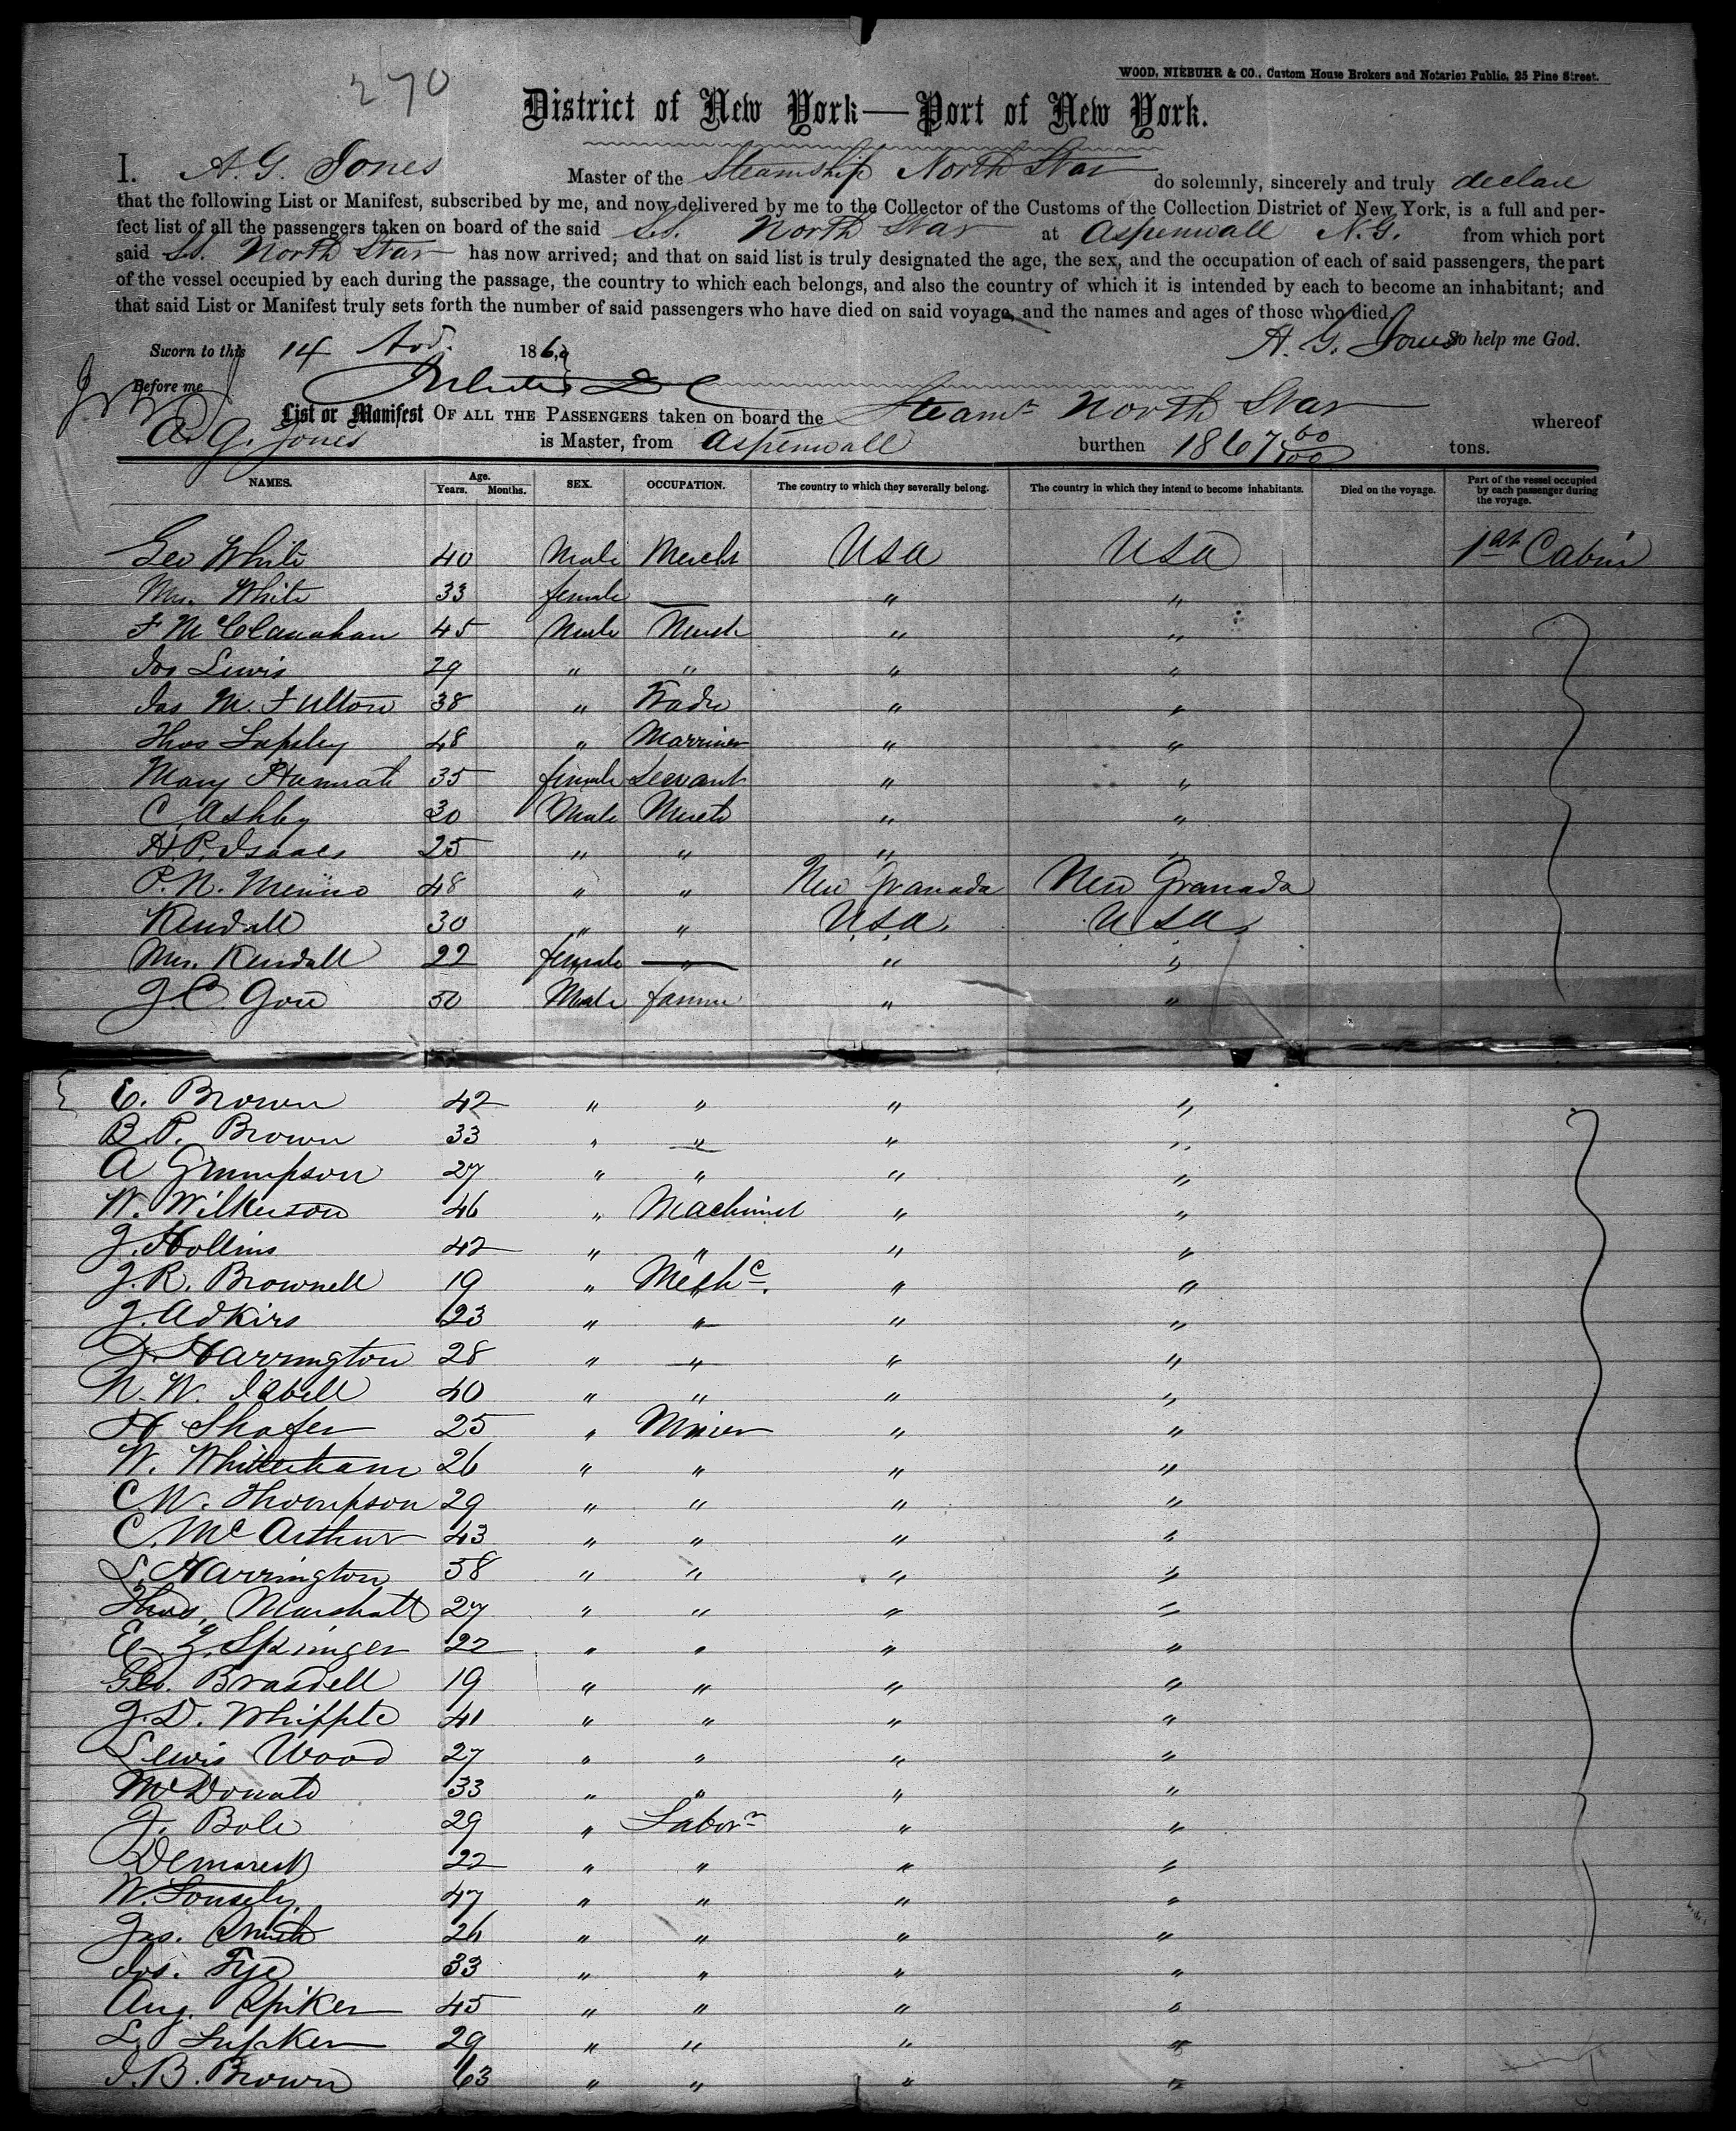 270
WOOD, NIEBUHR & CO., Custom House Brokers and Notaries Public, 25 Pine Street.
District of New York—Port of New York.
I. A. G. Jones Master of the Steamship North Star do solemnly, sincerely and truly declare
that the following List or Manifest, subscribed by me, and now delivered by me to the Collector of the Customs of the Collection District of New York, is a full and per-
fect list of all the passengers taken on board of the said S.S. North Star at Aspenwall N.G. from which port
said S.S. North Star has now arrived; and that on said list is truly designated the age, the sex, and the occupation of each of said passengers, the part
of the vessel occupied by each during the passage, the country to which each belongs, and also the country of which it is intended by each to become an inhabitant; and
that said List or Manifest truly sets forth the number of said passengers who have died on said voyage, and the names and ages of those who died.
Sworn to this 14 186 A. G. Jones So help me God.
Before me
List or Manifest OF ALL THE PASSENGERS taken on board the Steamr North Star whereof
A. G. Jones is Master, from Aspenwall burthen 1867 60/100 tons.
NAMES. Age. Years. Months. SEX. OCCUPATION. The country to which they severally belong. The country in which they intend to become inhabitants. Died on the voyage. Part of the vessel occupied by each passenger during the voyage.
Geo White 40 Male Mercht USA USA 1st Cabin
Mrs. White 33 female — " "
F McClanahan 45 Male Mercht " "
Jos Lewis 29 " " " "
Jas M. Fulton 38 " Trader " "
Thos Lapsley 48 " Marriner " "
Mary Hannah 35 female Servant " "
C. Ashby 30 Male Mercht " "
H. P. Isaacs 25 " " " "
P. N. Merino 48 " " New Granada New Granada
Kendall 30 " " USA. USA.
Mrs. Kendall 22 female " " "
J. C. Gore 50 Male farmer " "
E. Brown 42 " " " "
B. P. Brown 33 " " " "
A Grumpson 27 " " " "
W. Wilkerson 46 " Machinist " "
J. Hollins 42 " " " "
J. R. Brownell 19 " Mechc. " "
J. Adkirs 23 " " " "
D. Harrington 28 " " " "
N. W. Isbell 40 " " " "
H Shafer 25 " Miner " "
W. 26 " " " "
C W. Thompson 29 " " " "
C. McArthur 43 " " " "
L. Harrington 38 " " " "
Thos. Marshall 27 " " " "
E Springer 22 " " " "
Geo. Brasdell 19 " " " "
J. D. Whipple 41 " " " "
Lewis Wood 27 " " " "
McDonald 33 " " " "
J. Bole 29 " Laborr " "
Demarest 22 " " " "
W. Lousely 47 " " " "
Jas. Smith 26 " " " "
Jos. Fye 33 " " " "
Aug. Spiker 45 " " " "
L. Lupker 29 " " " "
J. B. Brown 63 " " " "